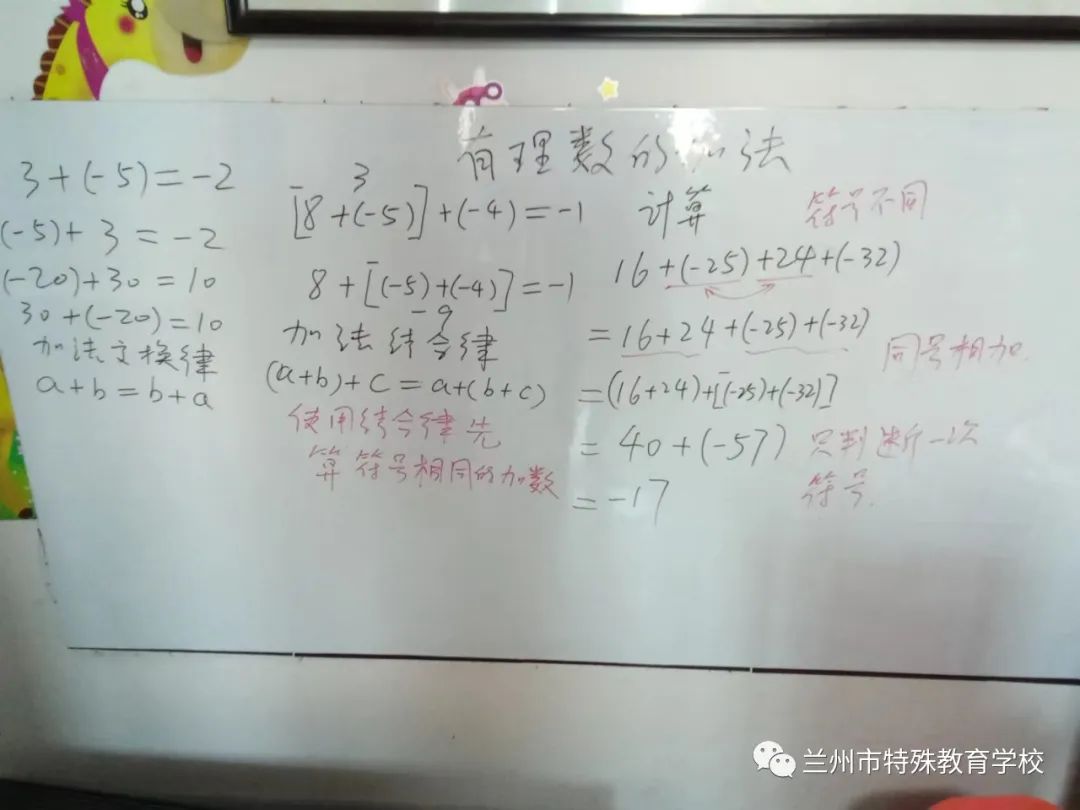 有理数的加法
3+(-5)=-2
(-5)+3=-2
(-20)+30=10
30+(-20)=10
加法交换律
a+b=b+a
3
[8+(-5)]+(-4)=-1
8+[(-5)+(-4)]=-1
-9
加法结合律
(a+b)+c=a+(b+c)
使用结合律先
算符号相同的加数
计算
符号不同
16+(-25)+24+(-32)
=16+24+(-25)+(-32)
同号相加.
=(16+24)+[(-25)+(-32)]
=40+(-57)
只判断一次
符号.
=-17
兰州市特殊教育学校